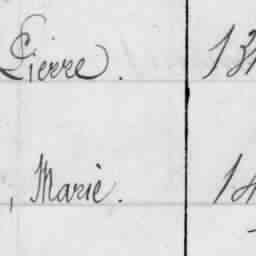 Pierre. 13
, Marie. 14